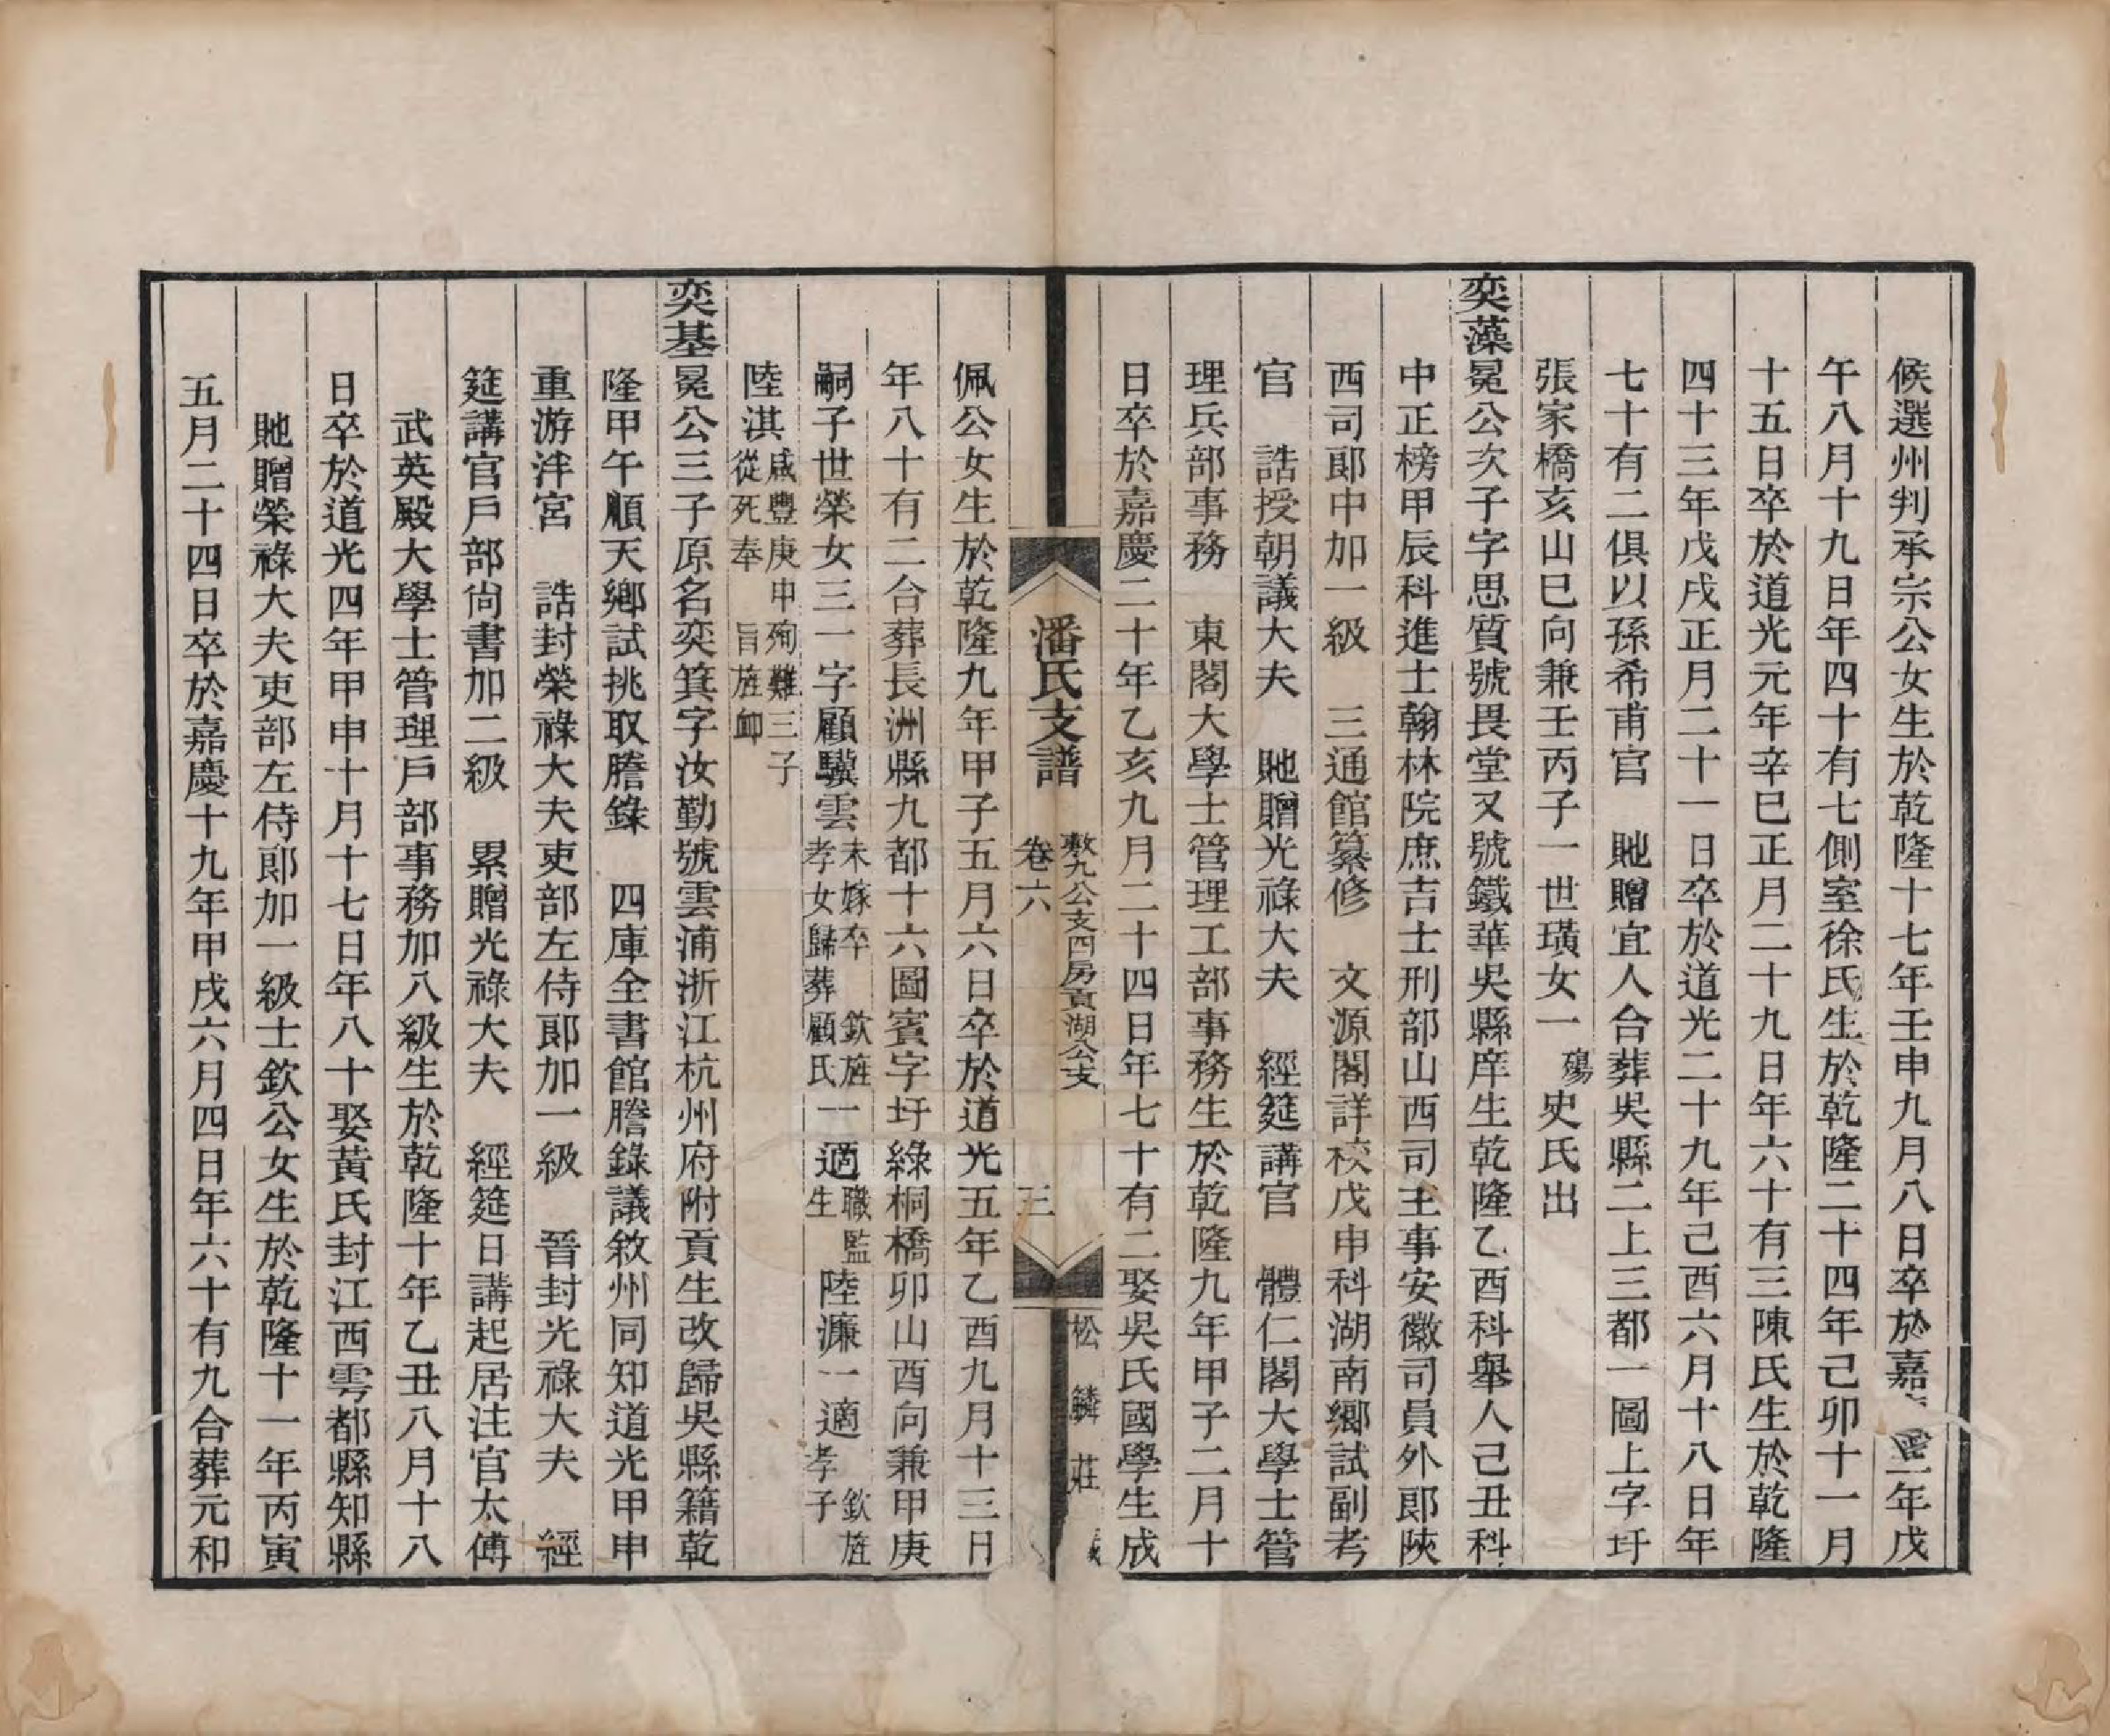 候選州判承宗公女生於乾隆十七年壬申九月八日卒於嘉 年戊
午八月十九日年四十有七側室徐氏生於乾隆二十四年己卯十一月
十五日卒於道光元年辛巳正月二十九日年六十有三陳氏生於乾隆
四十三年戊戌正月二十一日卒於道光二十九年己酉六月十八日年
七十有二俱以孫希甫官　貤贈宜人合葬吳縣二上三都一圖上字圩
張家橋亥山巳向兼壬丙子一世璜女一殤史氏出
奕藻冕公次子字思質號畏堂又號鐵華吳縣庠生乾隆乙酉科舉人己丑科
中正榜甲辰科進士翰林院庶吉士刑部山西司主事安徽司員外郎陝
西司郎中加一級　三通館纂修　文源閣詳校戊申科湖南鄉試副考
官　誥授朝議大夫　貤贈光祿大夫　經筵講官　體仁閣大學士管
理兵部事務　東閣大學士管理工部事務生於乾隆九年甲子二月十
日卒於嘉慶二十年乙亥九月二十四日年七十有二娶吳氏國學生成
潘氏支譜　卷六　敷九公支四房貢湖公支　三　松鱗莊
佩公女生於乾隆九年甲子五月六日卒於道光五年乙酉九月十三日
年八十有二合葬長洲縣九都十六圖賓字圩綠桐橋卯山酉向兼甲庚
嗣子世榮女三一字顧驥雲未嫁卒　欽旌孝女歸葬顧氏一適職監生陸濂一適　欽旌孝子
陸淇咸豐庚申殉難三子從死奉　旨旌卹
奕基冕公三子原名奕箕字汝勤號雲浦浙江杭州府附貢生改歸吳縣籍乾
隆甲午順天鄉試挑取謄錄　四庫全書館謄錄議敘州同知道光甲申
重游泮宮　誥封榮祿大夫吏部左侍郎加一級　晉封光祿大夫　經
筵講官戶部尚書加二級　累贈光祿大夫　經筵日講起居注官太傅
武英殿大學士管理戶部事務加八級生於乾隆十年乙丑八月十八
日卒於道光四年甲申十月十七日年八十娶黃氏封江西雩都縣知縣
貤贈榮祿大夫吏部左侍郎加一級士欽公女生於乾隆十一年丙寅
五月二十四日卒於嘉慶十九年甲戌六月四日年六十有九合葬元和